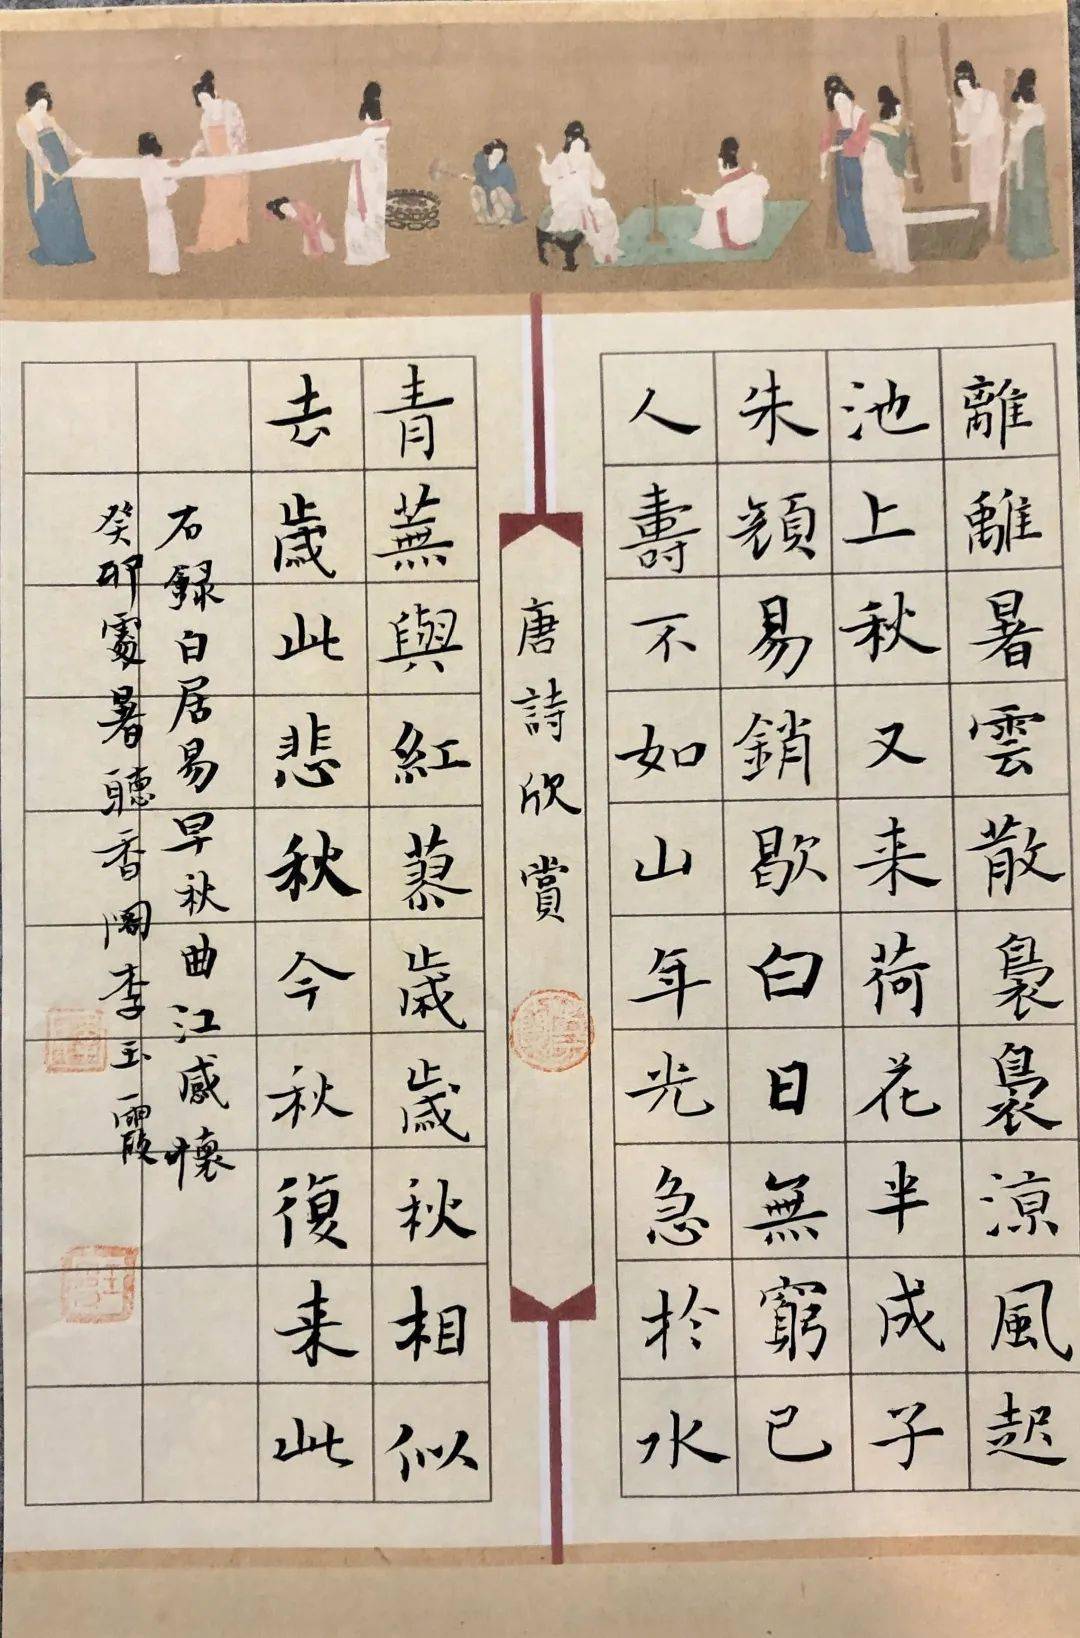 離離暑雲散裊裊涼風起
池上秋又来荷花半成子
朱顔易銷歇白日無窮已
人壽不如山年光急於水
唐詩欣賞
青蕪與紅蓼歲歲秋相似
去歲此悲秋今秋復来此
右録白居易早秋曲江感懷
癸卯處暑聽香閣李玉霞